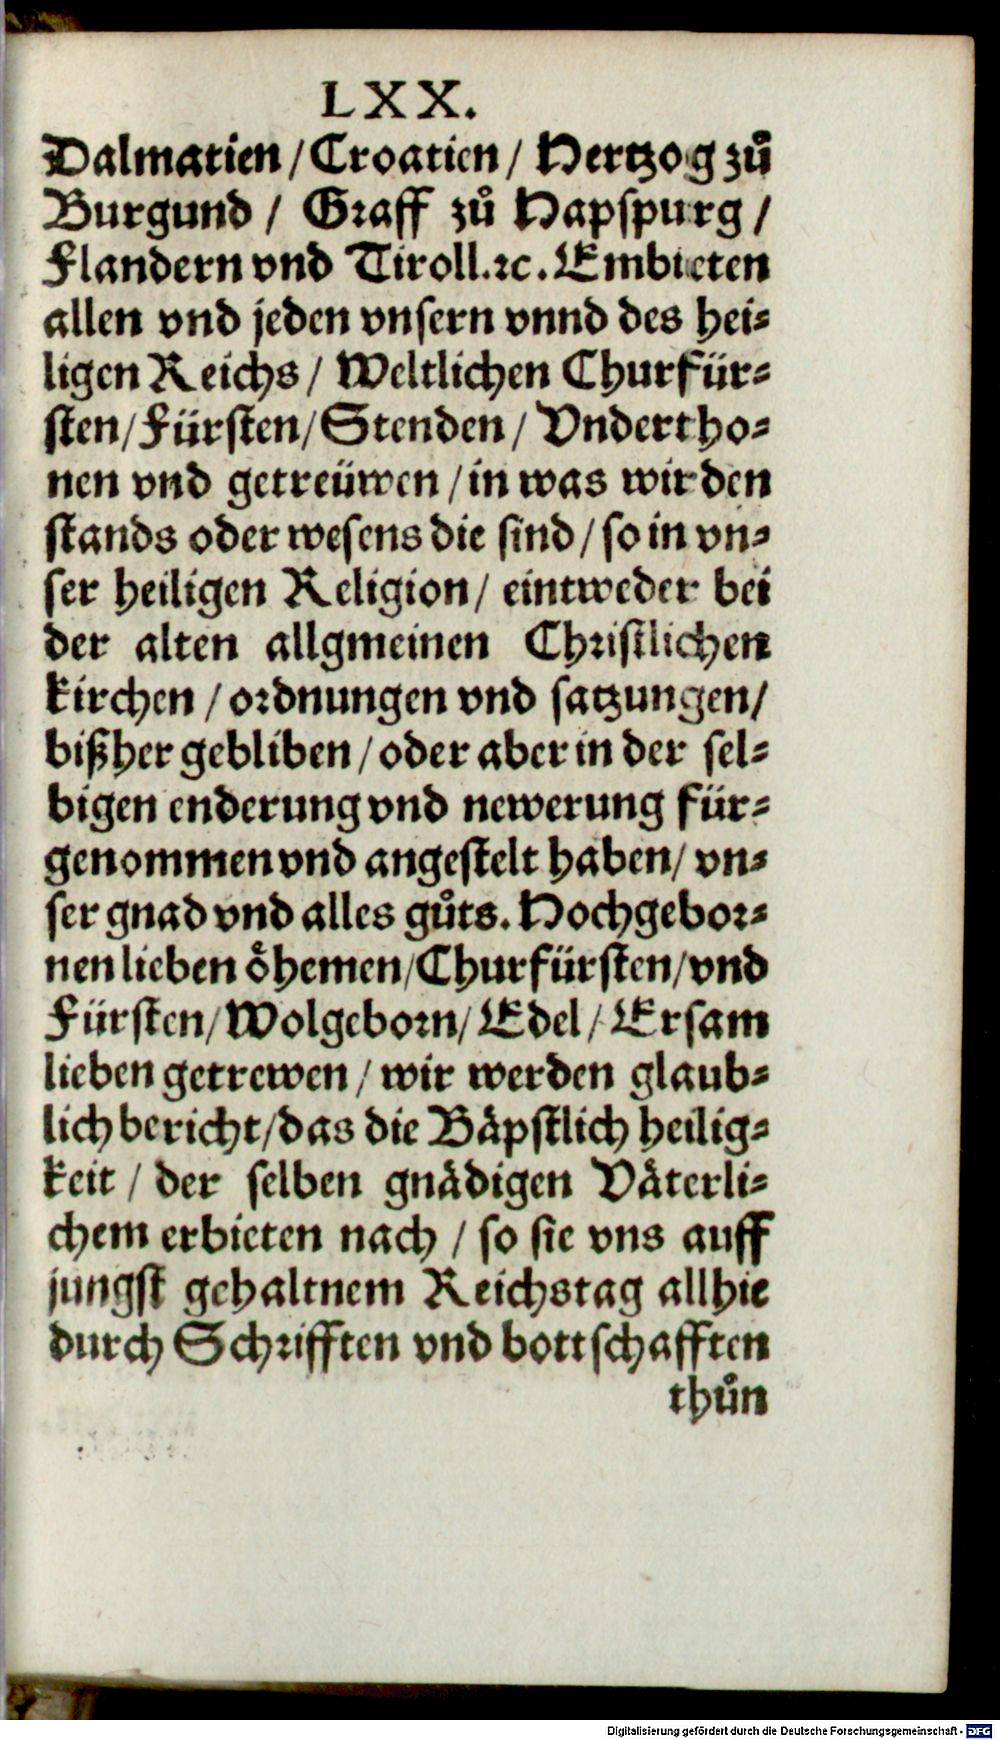 LXX.
Dalmatien / Croatien / Hertzog zů
Burgund / Graff zů Hapſpurg /
Flandern vnd Tiroll.ꝛc. Embieten
allen vnd jeden vnſern vnnd des hei⸗
ligen Reichs / Weltlichen Churfür⸗
ſten / Fürſten / Stenden / Vndertho⸗
nen vnd getreüwen / in was wirden
ſtands oder weſens die ſind / ſo in vn⸗
ſer heiligen Religion / eintweder bei
der alten allgmeinen Chꝛiſtlichen
kirchen / oꝛdnungen vnd ſatzungen /
bißher gebliben / oder aber in der ſel⸗
bigen enderung vnd newerung für⸗
genommen vnd angeſtelt haben / vn⸗
ſer gnad vnd alles gůts. Hochgeboꝛ⸗
nen lieben oͤhemen / Churfürſten / vnd
Fürſten / Wolgeboꝛn / Edel / Erſam
lieben getrewen / wir werden glaub⸗
lich bericht / das die Baͤpſtlich heilig⸗
keit / der ſelben gnaͤdigen Vaͤterli⸗
chem erbieten nach / ſo ſie vns auff
jungſt gehaltnem Reichstag allhie
durch Schꝛifften vnd bottſchafften
thůn
Digitalisierung gefördert durch die Deutsche Forschungsgemeinschaft - DFG